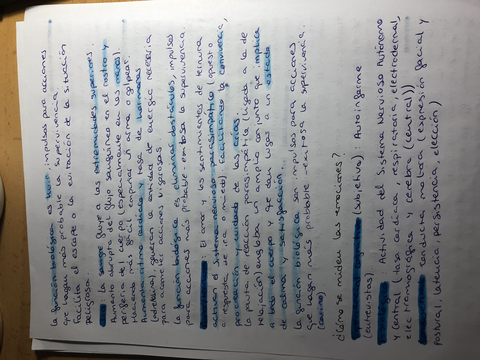 La función biológica es huir, impulsos para acciones
que hagan más probable la supervivencia.
Facilita el escape o la evitación de la situación
peligrosa.
La sangre fluye a las extremidades superiores.
Aumento abrupto del flujo sanguíneo en el rostro y
periferia de cuerpo (especialmente en las manos).
Haciendo más fácil empuñar un arma o golpear.
Aumenta ritmo cardíaco y tasa de hormonas
(adrenalina), genera la cantidad de energía necesaria
para acometer acciones vigorosas.
La función biológica es eliminar obstáculos, impulsos
para acciones más probable exitosa la supervivencia.
: El amor y los sentimientos de ternura
activan el sistema nervioso parasimpático (opuesto
a respuesta de ira o miedo). Facilitando la convivencia,
protección y cuidado de las crías.
La pauta de reacción parasimpática (ligada a la de
relajación) engloba un amplio conjunto que implica
a todo el cuerpo y que dan lugar a un estado
de calma y satisfacción.
La función biológica son impulsos para acciones
que hagan más probable exitosa la supervivencia.
¿Cómo se miden las emociones?
(subjetiva): Autoinforme
(entrevistas)
: Actividad del Sistema Nervioso Autónomo
y central (tasa cardíaca, respiratoria, electrodermal,
electromiográfica y cerebral (central))
Conducta motora (expresión facial y
postural, latencia, persistencia, elección)